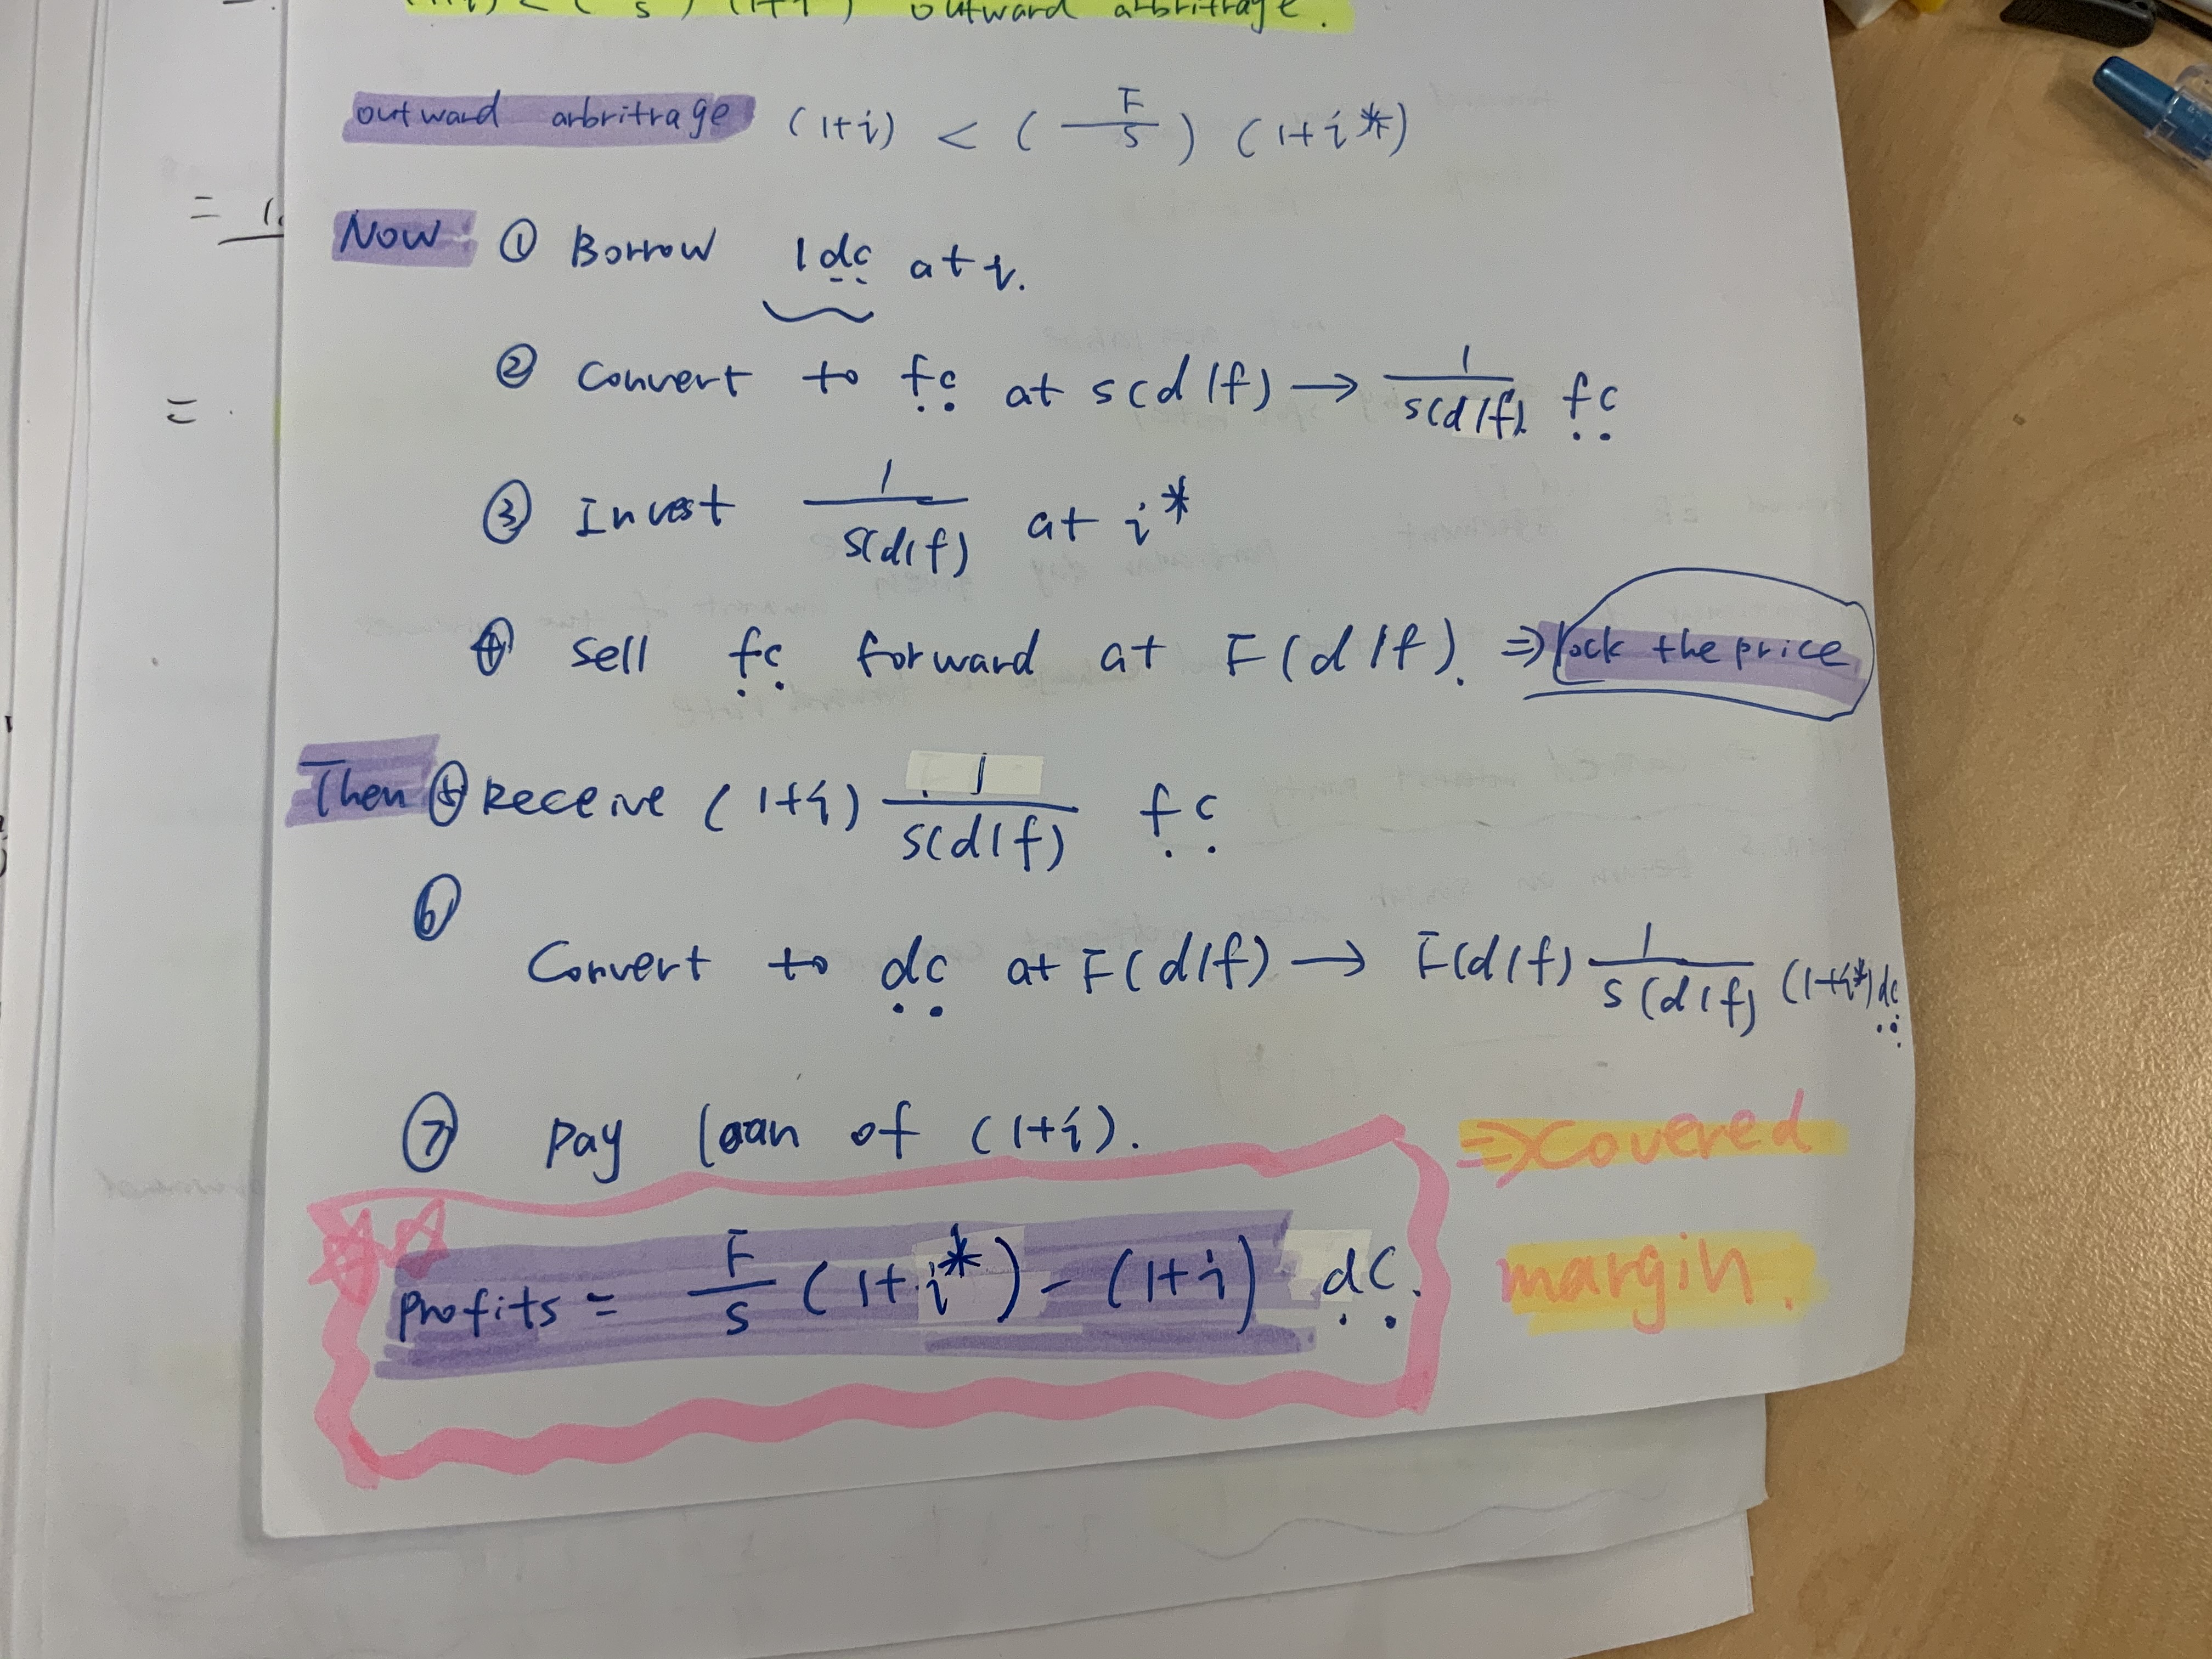 outward arbritrage.
outward arbritrage (1+i) < ( F/S ) (1+i*)
Now ① Borrow 1dc at i.
② Convert to fc at S(d/f) → 1/S(d/f) fc
③ Invest 1/S(d/f) at i*
④ Sell fc forward at F(d/f). ⇒ lock the price
Then Receive (1+i) 1/S(d/f) fc
⑥
Convert to dc at F(d/f) → F(d/f) 1/S(d/f) (1+i*)dc
⑦ Pay loan of (1+i).
⇒ Covered
profits = F/S (1+i*) - (1+i) dc.
margin.